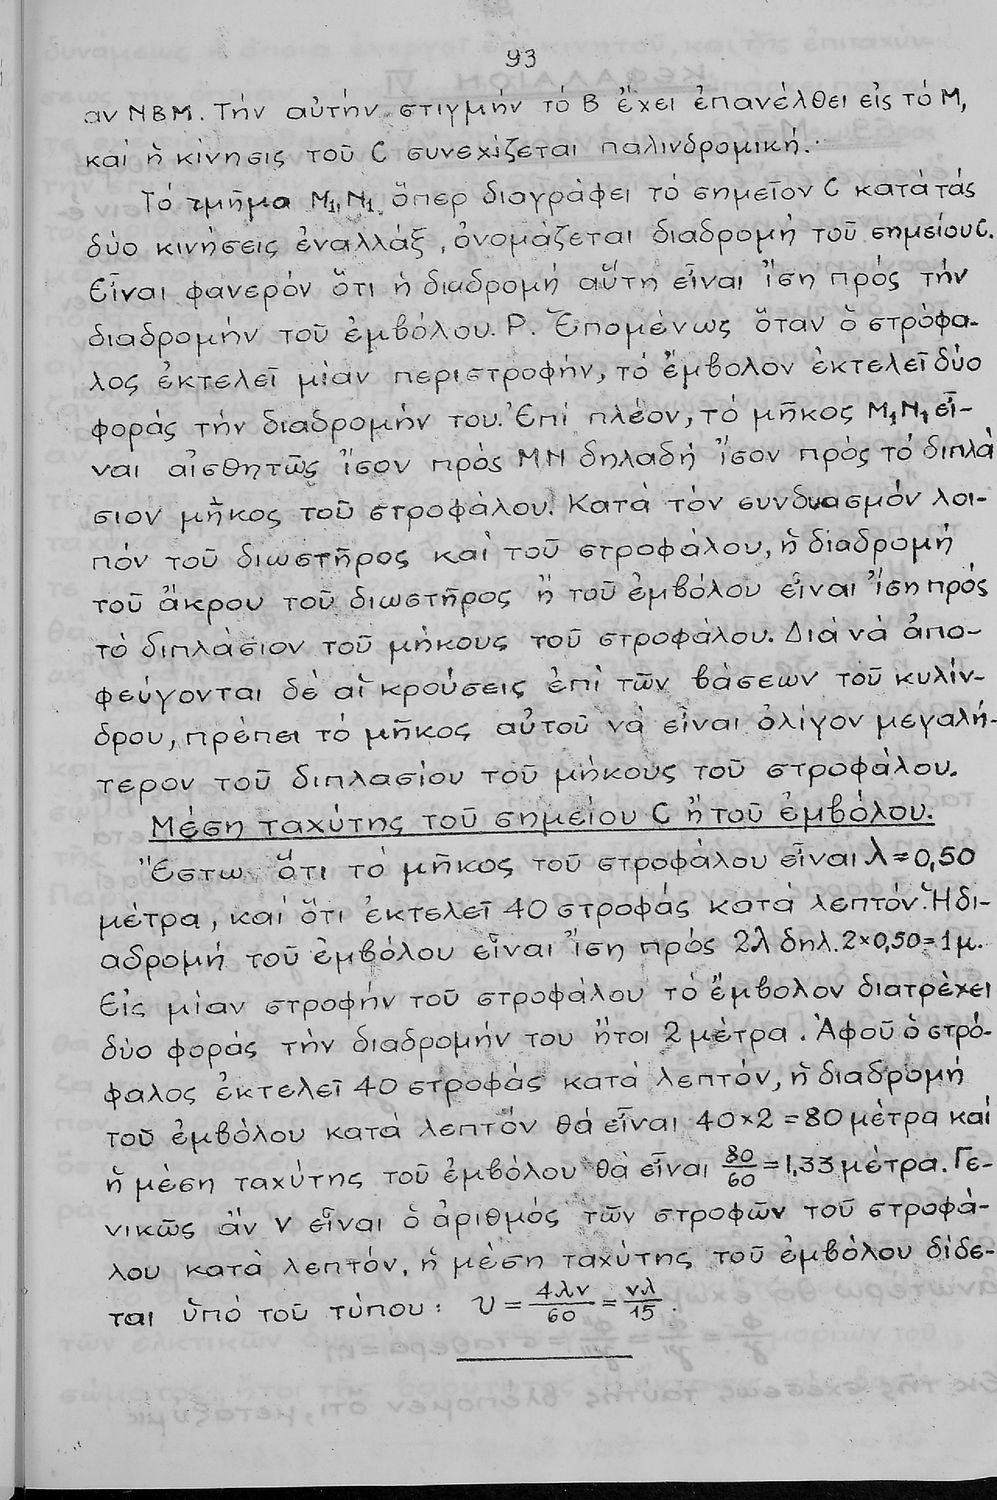 93
αν ΝΒΜ. Τήν αὐτήν στιγμήν τό Β ἔχει ἐπανέλθει εἰς τό Μ,
καί ἡ κίνησις τοῦ C συνεχίζεται παλινδρομική.
Τό τμῆμα Μ₁Ν₁ ὅπερ διαγράφει τό σημεῖον C κατά τάς
δύο κινήσεις ἐναλλάξ, ὀνομάζεται διαδρομή τοῦ σημείου C.
Εἶναι φανερόν ὅτι ἡ διαδρομή αὕτη εἶναι ἴση πρός τήν
διαδρομήν τοῦ ἐμβόλου Ρ. Ἑπομένως ὅταν ὁ στρόφα-
λος ἐκτελεῖ μίαν περιστροφήν, τό ἔμβολον ἐκτελεῖ δύο
φοράς τήν διαδρομήν του. Ἐπί πλέον, τό μῆκος Μ₁Ν₁ εἶ-
ναι αἰσθητῶς ἴσον πρός ΜΝ δηλαδή ἴσον πρός τό διπλά
σιον μῆκος τοῦ στροφάλου. Κατά τόν συνδυασμόν λοι-
πόν τοῦ διωστῆρος καί τοῦ στροφάλου, ἡ διαδρομή
τοῦ ἄκρου τοῦ διωστῆρος ἤ τοῦ ἐμβόλου εἶναι ἴση πρός
τό διπλάσιον τοῦ μήκους τοῦ στροφάλου. Διά νά ἀπο-
φεύγονται δέ αἱ κρούσεις ἐπί τῶν βάσεων τοῦ κυλίν-
δρου, πρέπει τό μῆκος αὐτοῦ νά εἶναι ὀλίγον μεγαλή-
τερον τοῦ διπλασίου τοῦ μήκους τοῦ στροφάλου.
Μέση ταχύτης τοῦ σημείου C ἤ τοῦ ἐμβόλου.
Ἔστω ὅτι τό μῆκος τοῦ στροφάλου εἶναι λ=0,50
μέτρα, καί ὅτι ἐκτελεῖ 40 στροφάς κατά λεπτόν. Ἡ δι-
αδρομή τοῦ ἐμβόλου εἶναι ἴση πρός 2λ δηλ. 2×0,50=1μ.
Εἰς μίαν στροφήν τοῦ στροφάλου τό ἔμβολον διατρέχει
δύο φοράς τήν διαδρομήν του ἤτοι 2 μέτρα. Ἀφοῦ ὁ στρό-
φαλος ἐκτελεῖ 40 στροφάς κατά λεπτόν, ἡ διαδρομή
τοῦ ἐμβόλου κατά λεπτόν θά εἶναι 40×2=80 μέτρα καί
ἡ μέση ταχύτης τοῦ ἐμβόλου θά εἶναι 80/60=1,33 μέτρα. Γε-
νικῶς ἄν ν εἶναι ὁ ἀριθμός τῶν στροφῶν τοῦ στροφά-
λου κατά λεπτόν, ἡ μέση ταχύτης τοῦ ἐμβόλου δίδε-
ται ὑπό τοῦ τύπου: υ = 4λν/60 = νλ/15.